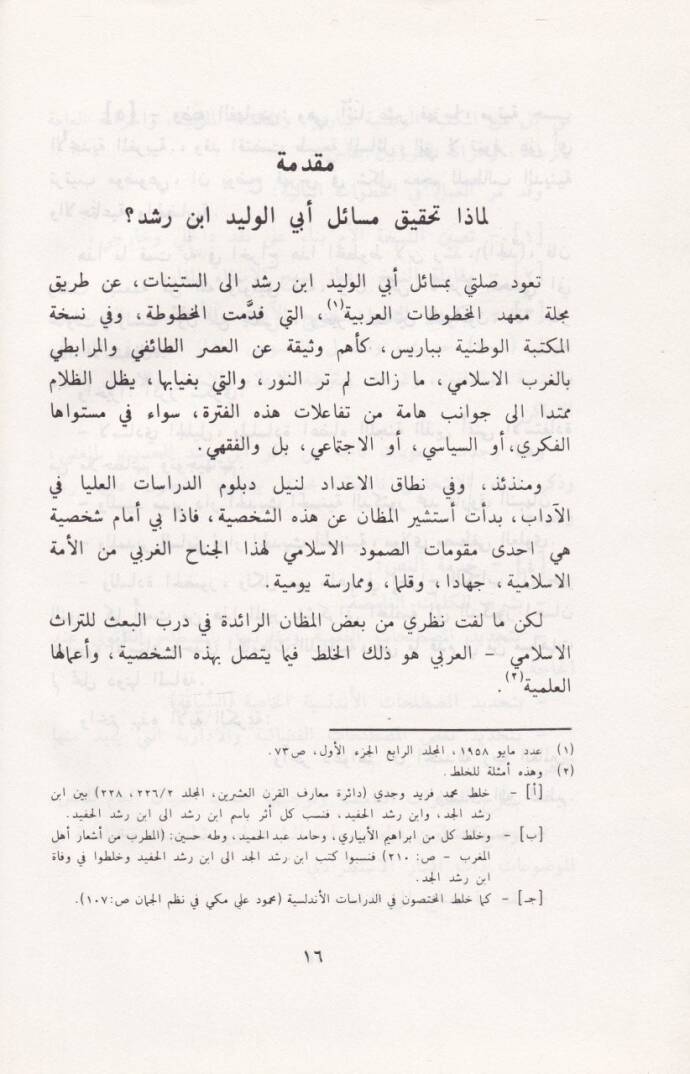 مقدمة
لماذا تحقيق مسائل أبي الوليد ابن رشد؟
تعود صلتي بمسائل أبي الوليد ابن رشد الى الستينات، عن طريق
مجلة معهد المخطوطات العربية(١)، التي قدَّمت المخطوطة، وفي نسخة
المكتبة الوطنية بباريس، كأهم وثيقة عن العصر الطائفي والمرابطي
بالغرب الاسلامي، ما زالت لم تر النور، والتي بغيابها، يظل الظلام
ممتدا الى جوانب هامة من تفاعلات هذه الفترة، سواء في مستواها
الفكري، أو السياسي، أو الاجتماعي، بل والفقهي.
ومنذئذ، وفي نطاق الاعداد لنيل دبلوم الدراسات العليا في
الآداب، بدأت أستشير المظان عن هذه الشخصية، فاذا بي أمام شخصية
هي احدى مقومات الصمود الاسلامي لهذا الجناح الغربي من الأمة
الاسلامية، جهادا، وقلما، وممارسة يومية.
لكن ما لفت نظري من بعض المظان الرائدة في درب البعث للتراث
الاسلامي – العربي هو ذلك الخلط فيما يتصل بهذه الشخصية، وأعمالها
العلمية(٢).
(١) عدد مايو ١٩٥٨، المجلد الرابع الجزء الأول، ص٧٣.
(٢) وهذه أمثلة للخلط.
[أ] – خلط محمد فريد وجدي (دائرة معارف القرن العشرين، المجلد ٢٢٦/٢، ٢٢٨) بين ابن
رشد الجد، وابن رشد الحفيد، فنسب كل أثر باسم ابن رشد الى ابن رشد الحفيد.
[ب] – وخلط كل من ابراهيم الأبياري، وحامد عبد الحميد، وطه حسين: (المطرب من أشعار أهل
المغرب – ص: ٢١٠) فنسبوا كتب ابن رشد الجد الى ابن رشد الحفيد وخلطوا في وفاة
ابن رشد الجد.
[جـ] – كما خلط المختصون في الدراسات الأندلسية (محمود علي مكي في نظم الجمان ص:١٠٧).
١٦